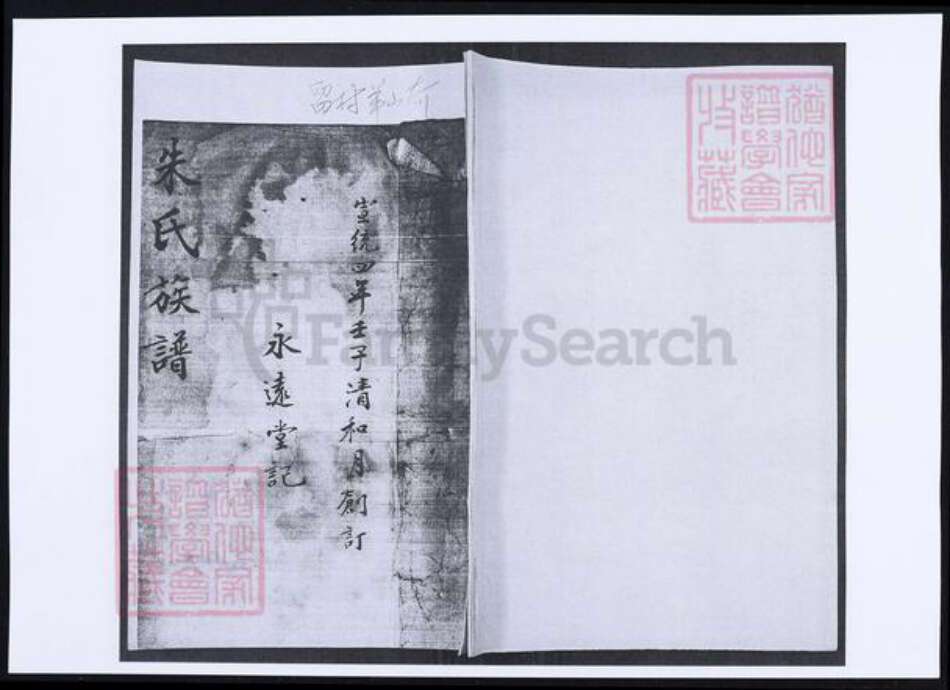 朱氏族譜
宣統四年壬子清和月創訂
永遠堂記
猶他家
譜學會
收藏
猶他家
譜學會
收藏
FamilySearch